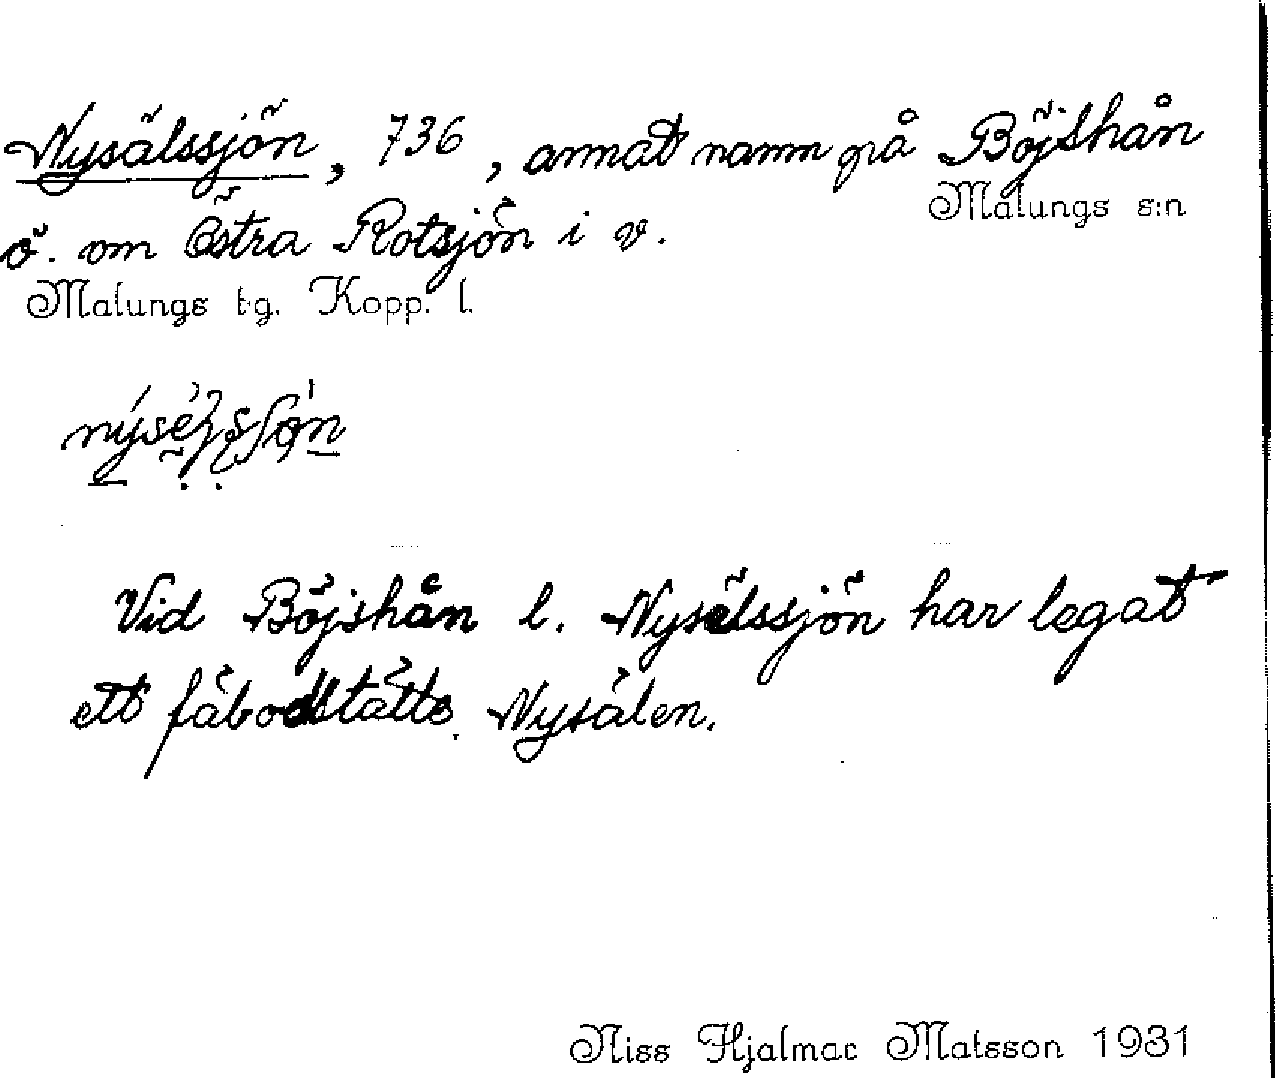 Nysälssjön, 736, annat namn på Böjshån
Malungs s:n
ö. om Östra Rotsjön i v.
Malungs tg. Kopp. l.
Vid Böjshån l. Nysälssjön har legat
ett fäbodställe Nysälen.
Niss Hjalmar Matsson 1931